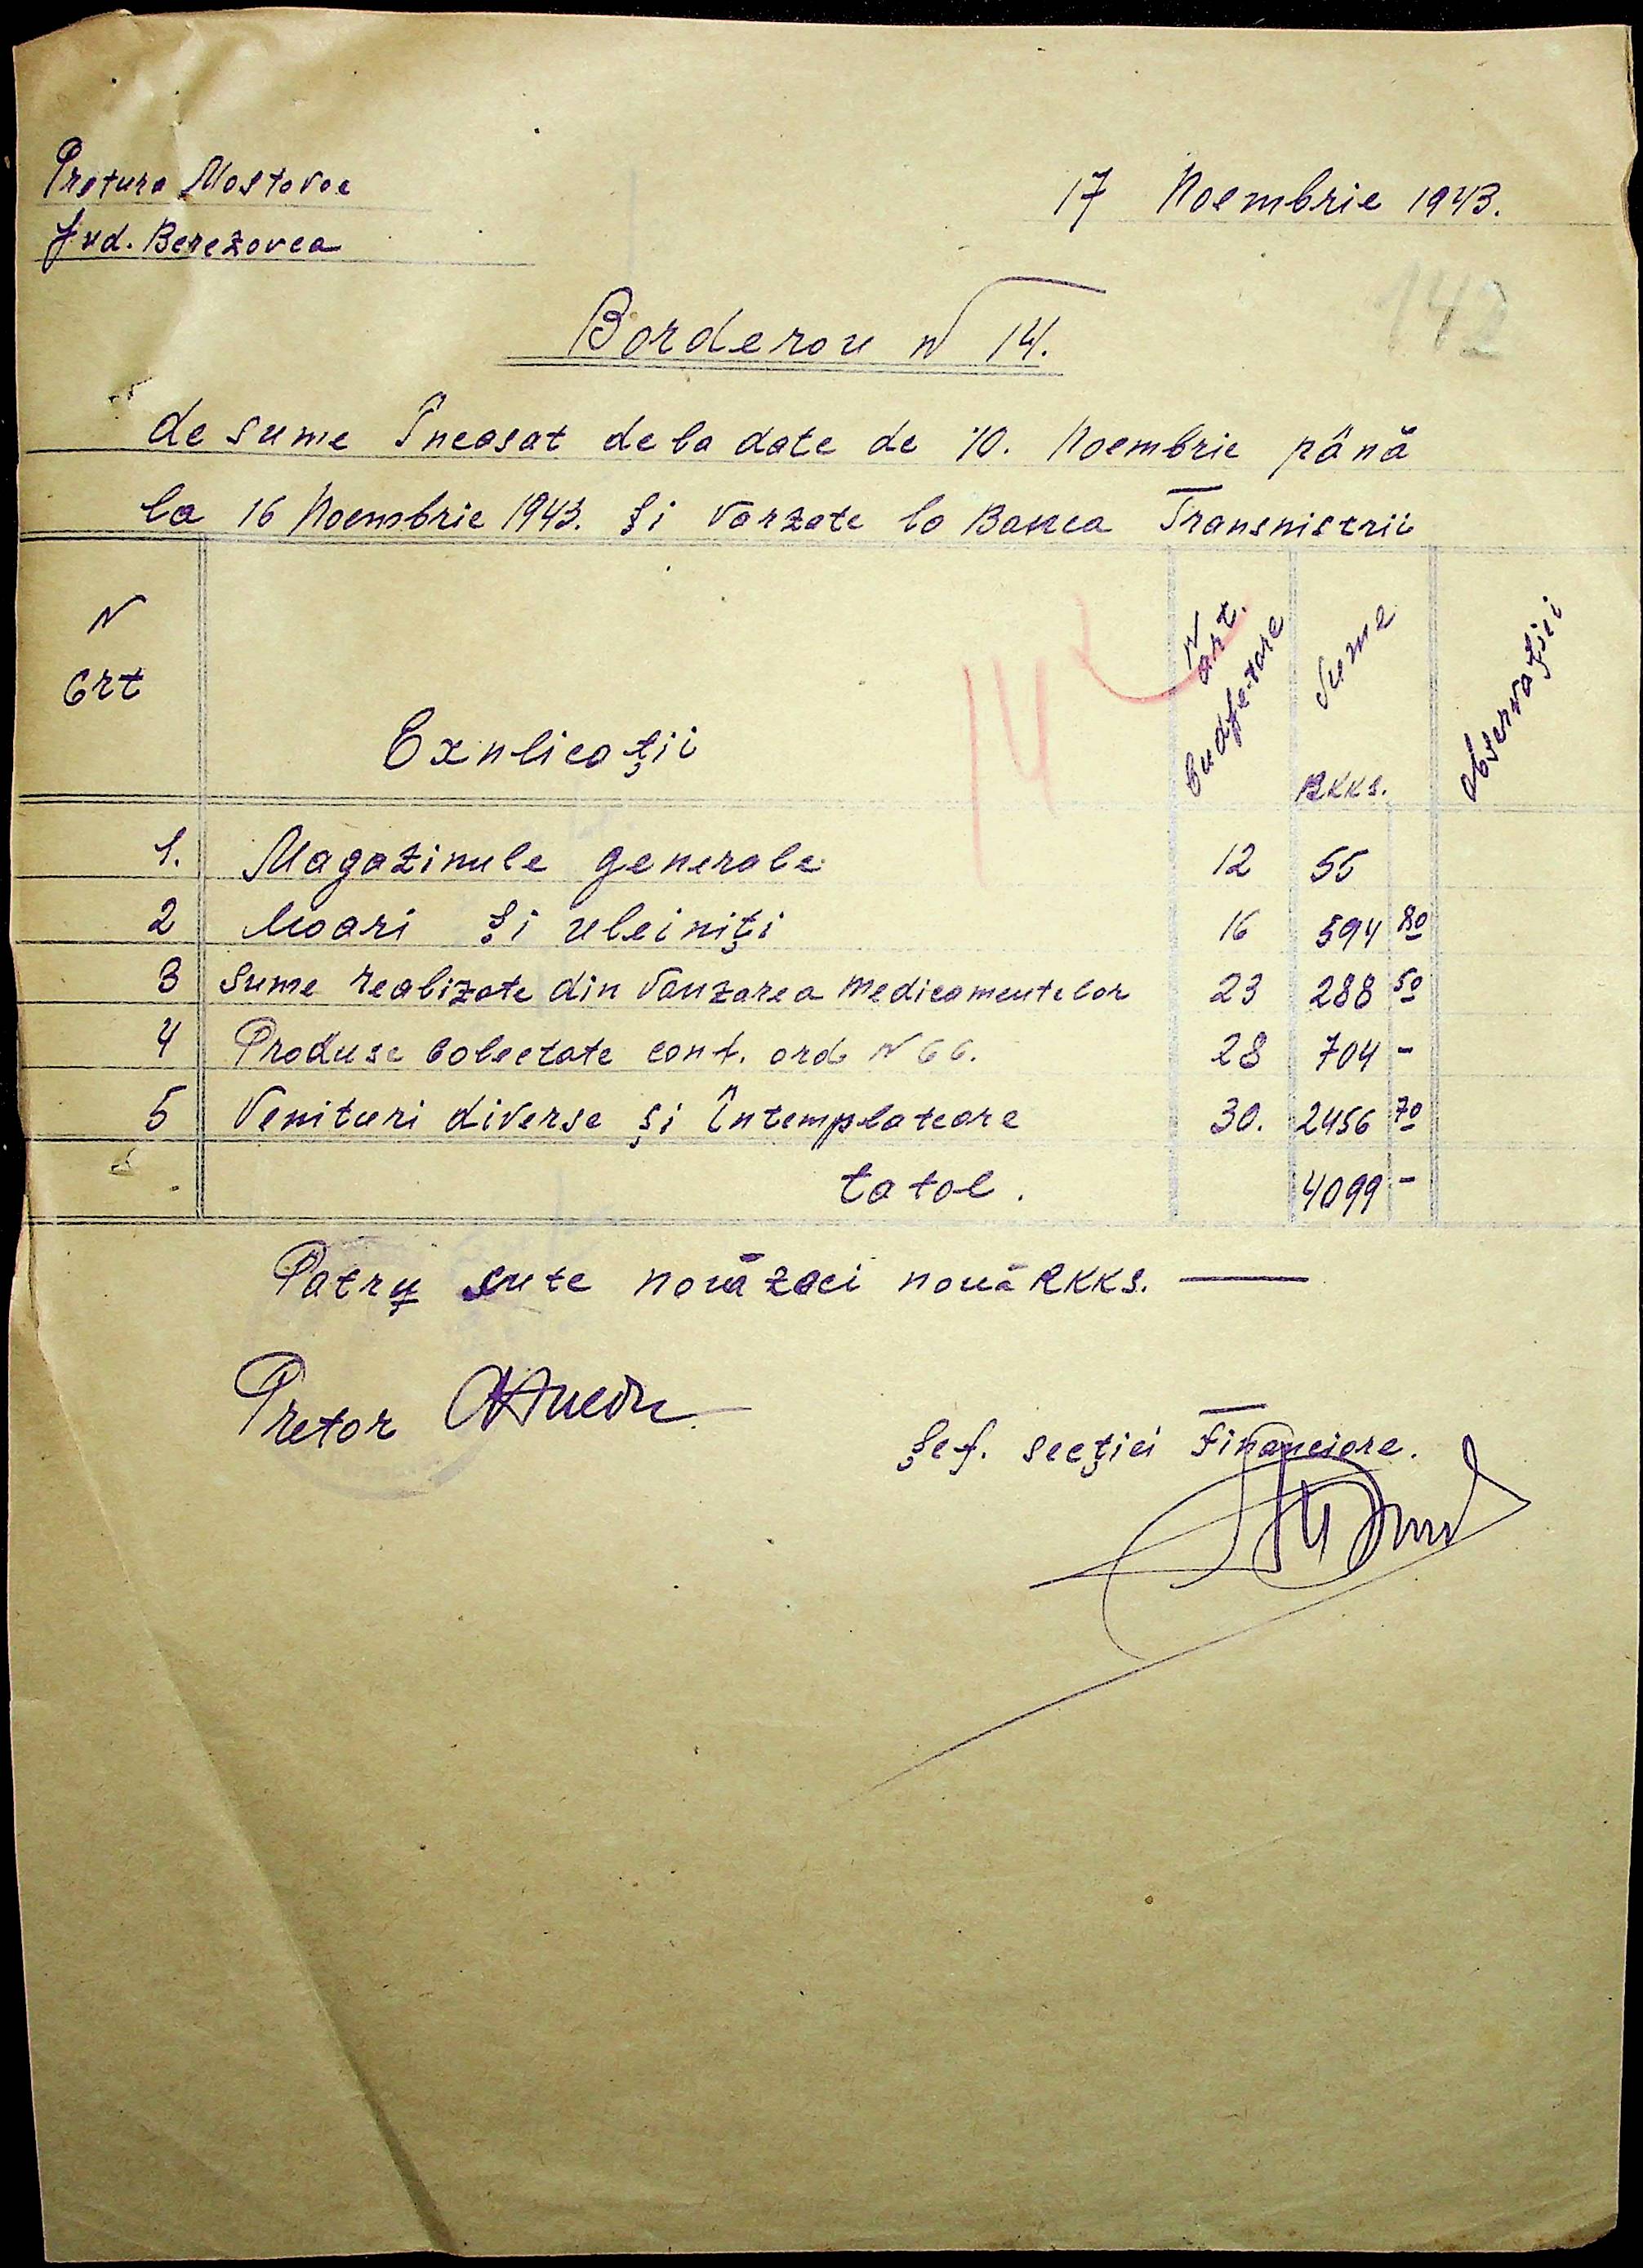 Pretura Mostovoe
Jud. Berezovca
17 Noembrie 1943.
142
Borderou N 14.
de sume Încasat dela date de 10. Noembrie până
la 16 Noembrie 1943. și varzate la Banca Transnistrii
N crt
Explicații
N art. budjetare
Sume RKKS.
observații
14
1. Magazinule generale 12 55
2 Moari și uleiniți 16 594 80
3 Sume realizate din Vanzarea medicamentelor 23 288 50
4 Produse colectate conf. ord N 66. 28 704 -
5 Venituri diverse și Întemplateare 30. 2456 70
total. 4099 -
Patru sute nouăzeci nouă RKKS. —
Pretor
Șef. secției Financiare.